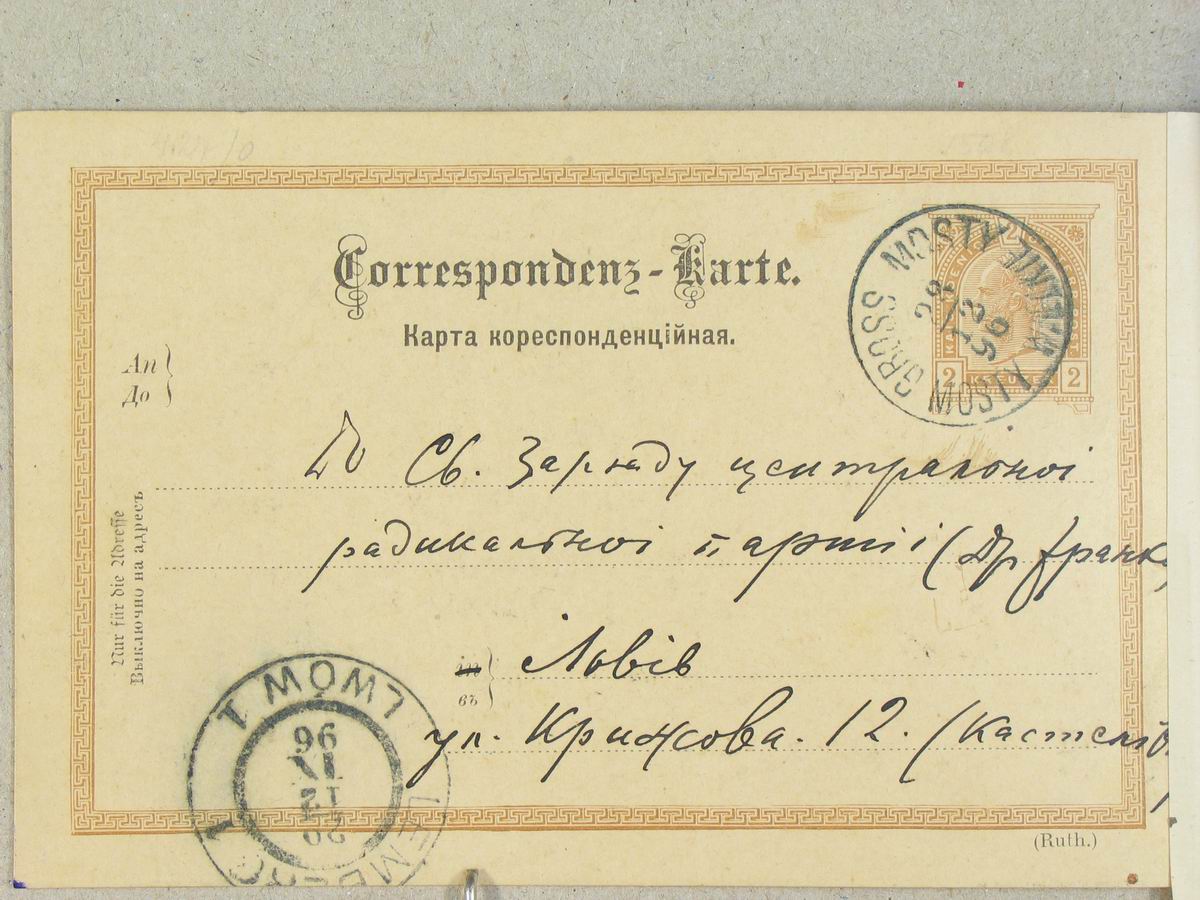 Correspondenz-Karte.
Карта кореспонденційная.
An
До
MOSTY WIELKIE
GROSS MOSTY
28
12
96
2
2
До Св. Заряду центральної
радикальної партії (Др Франк
Nur für die Adresse
Выключно на адресъ
in
въ
Львів
ул. Крижова. 12. (Кастелів
LWÓW 1
LEMBERG 1
96
12
29
(Ruth.)